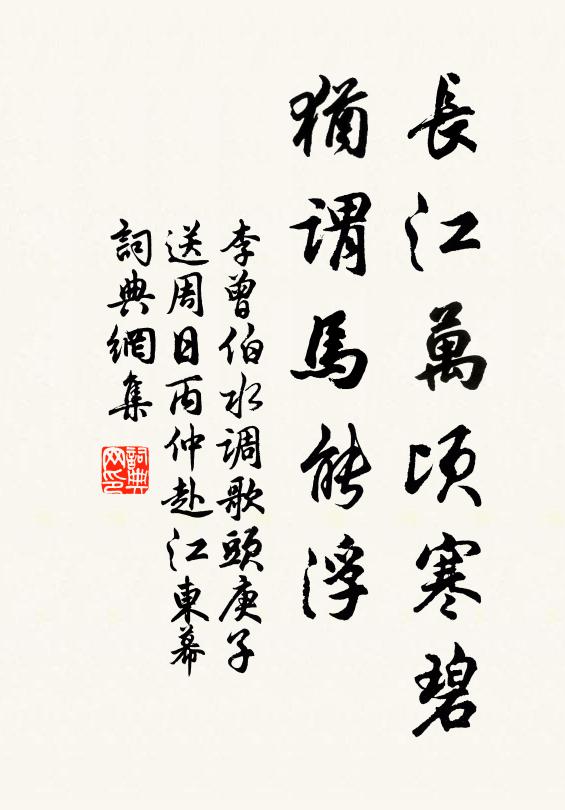 長江萬頃寒碧
猶謂馬能浮
李曾伯水调歌頭庚子
送周日丙仲赴江東幕
詞典網集
詞典
网印